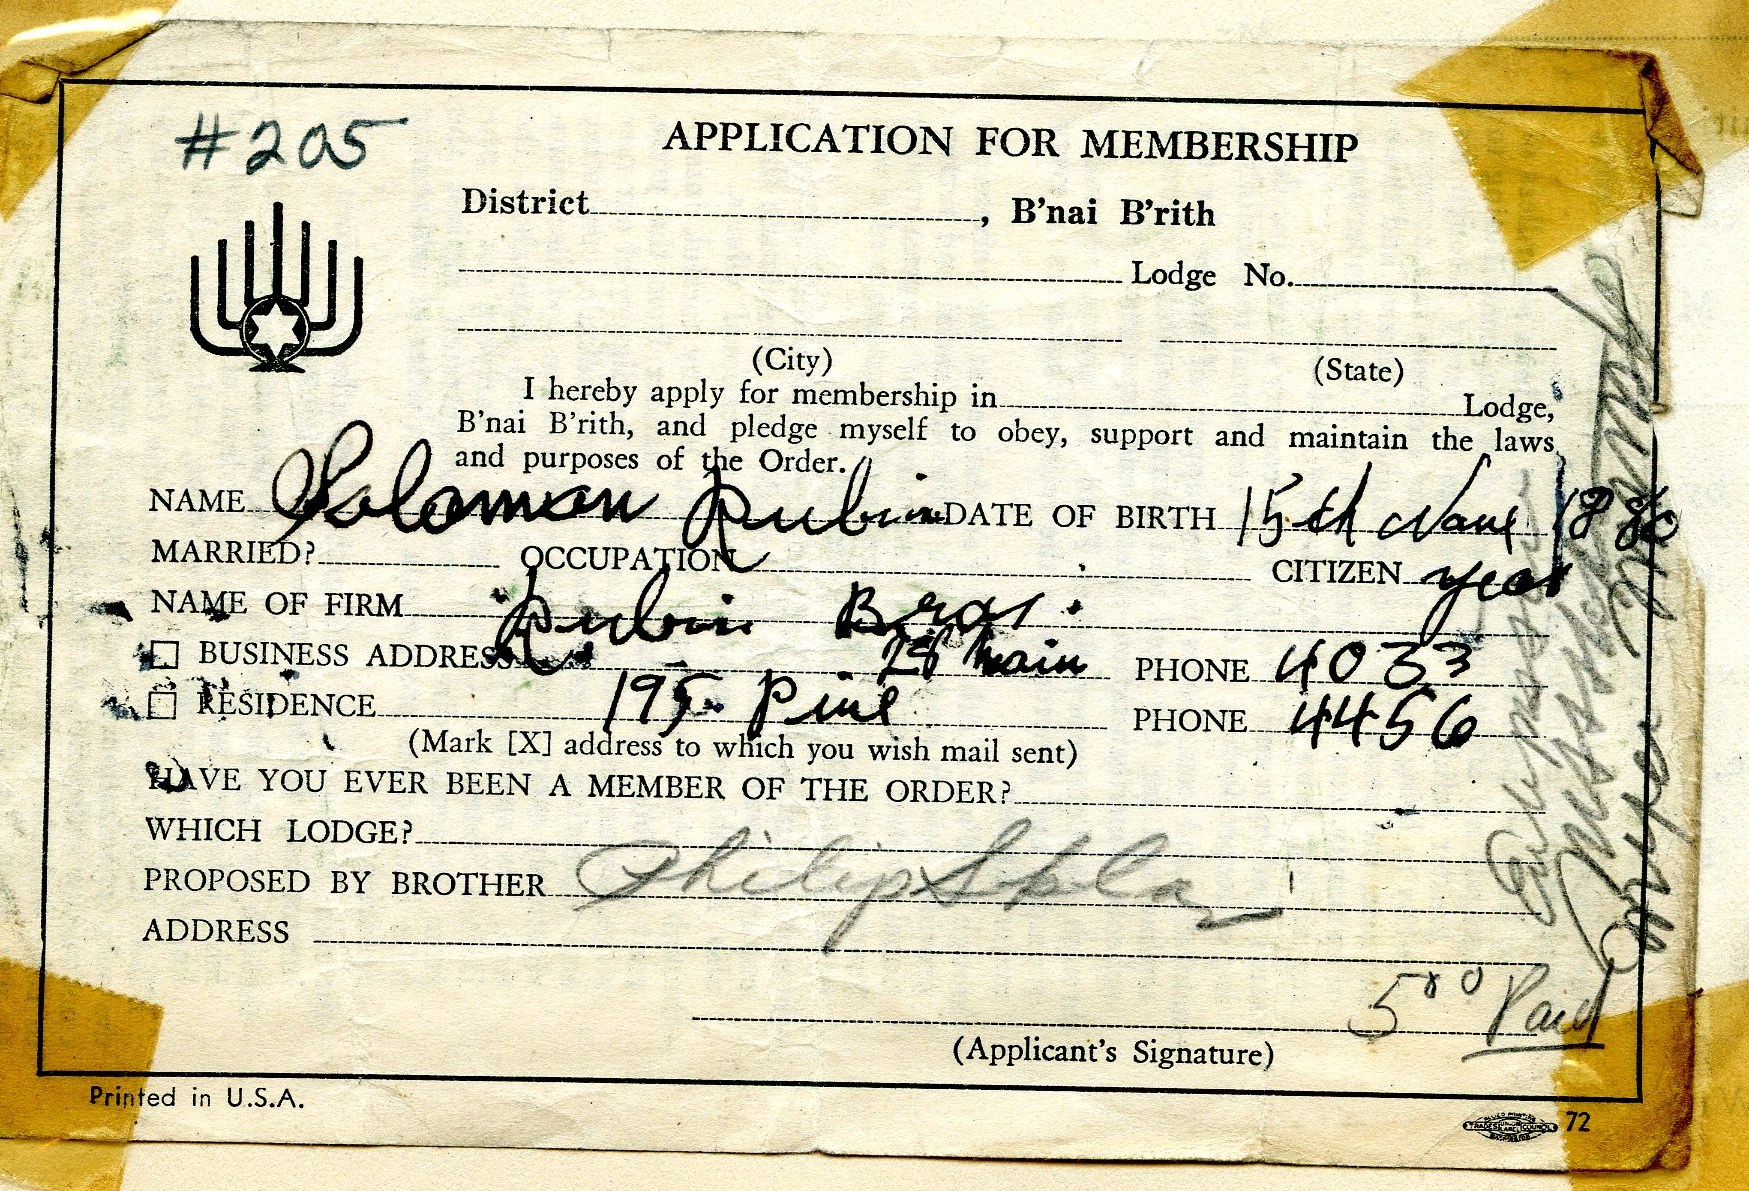 #205
APPLICATION FOR MEMBERSHIP
District, B'nai B'rith
Lodge No.
(City) (State)
I hereby apply for membership in Lodge,
B'nai B'rith, and pledge myself to obey, support and maintain the laws
and purposes of the Order.
NAME Solomon Rubin DATE OF BIRTH 15th 1880
MARRIED? OCCUPATION CITIZEN
NAME OF FIRM Rubin Bros.
BUSINESS ADDRESS 28 Main PHONE 4033
RESIDENCE 195 Pine PHONE 4456
(Mark [X] address to which you wish mail sent)
HAVE YOU EVER BEEN A MEMBER OF THE ORDER?
WHICH LODGE?
PROPOSED BY BROTHER Philip
ADDRESS
5 00 Paid
(Applicant's Signature)
Printed in U.S.A.
72